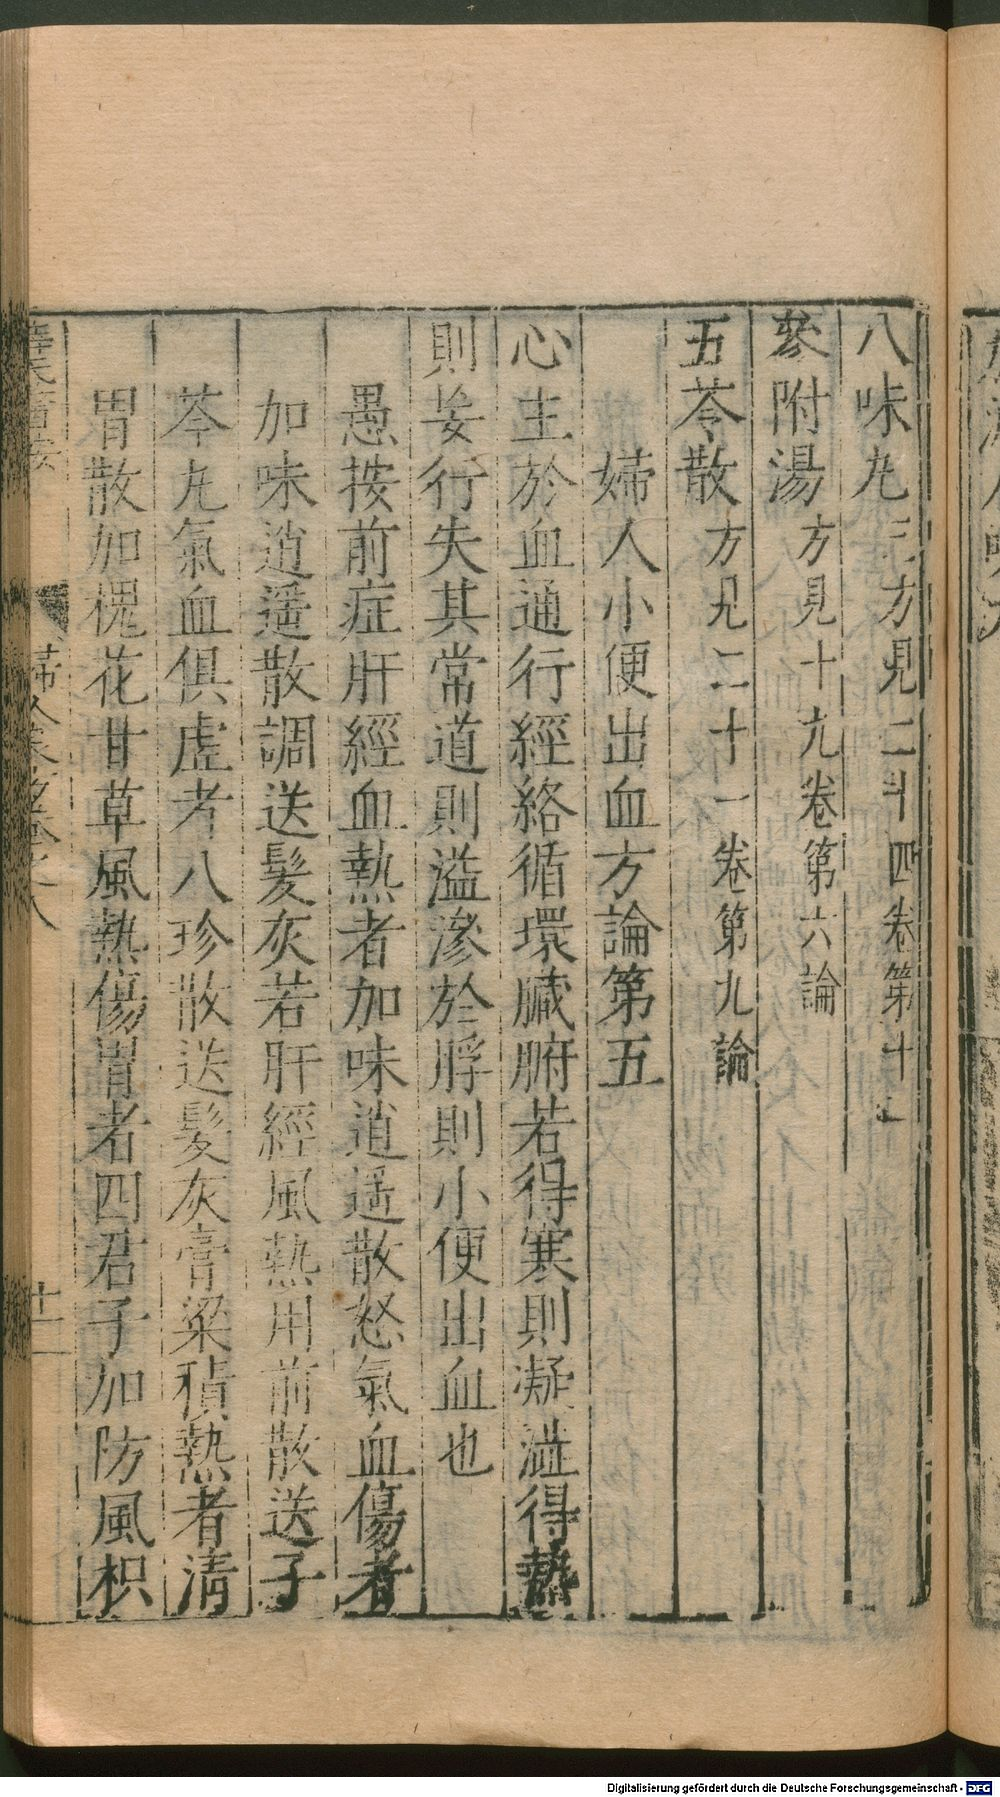 八味丸三方見二十四卷第十一
參附湯方見十九卷第六論
五苓散方見二十一卷第九論
婦人小便出血方論第五
心主於血通行經絡循環臟腑若得寒則凝澁得熱
則妄行失其常道則溢滲於脬則小便出血也
愚按前症肝經血熱者加味逍遥散怒氣血傷者
加味逍遥散調送髮灰若肝經風熱用前散送子
芩丸氣血俱虛者八珍散送髮灰膏粱積熱者清
胃散加槐花甘草風熱傷胃者四君子加防風枳
薛氏醫按
婦人良方卷之八
十一
Digitalisierung gefördert durch die Deutsche Forschungsgemeinschaft - DFG